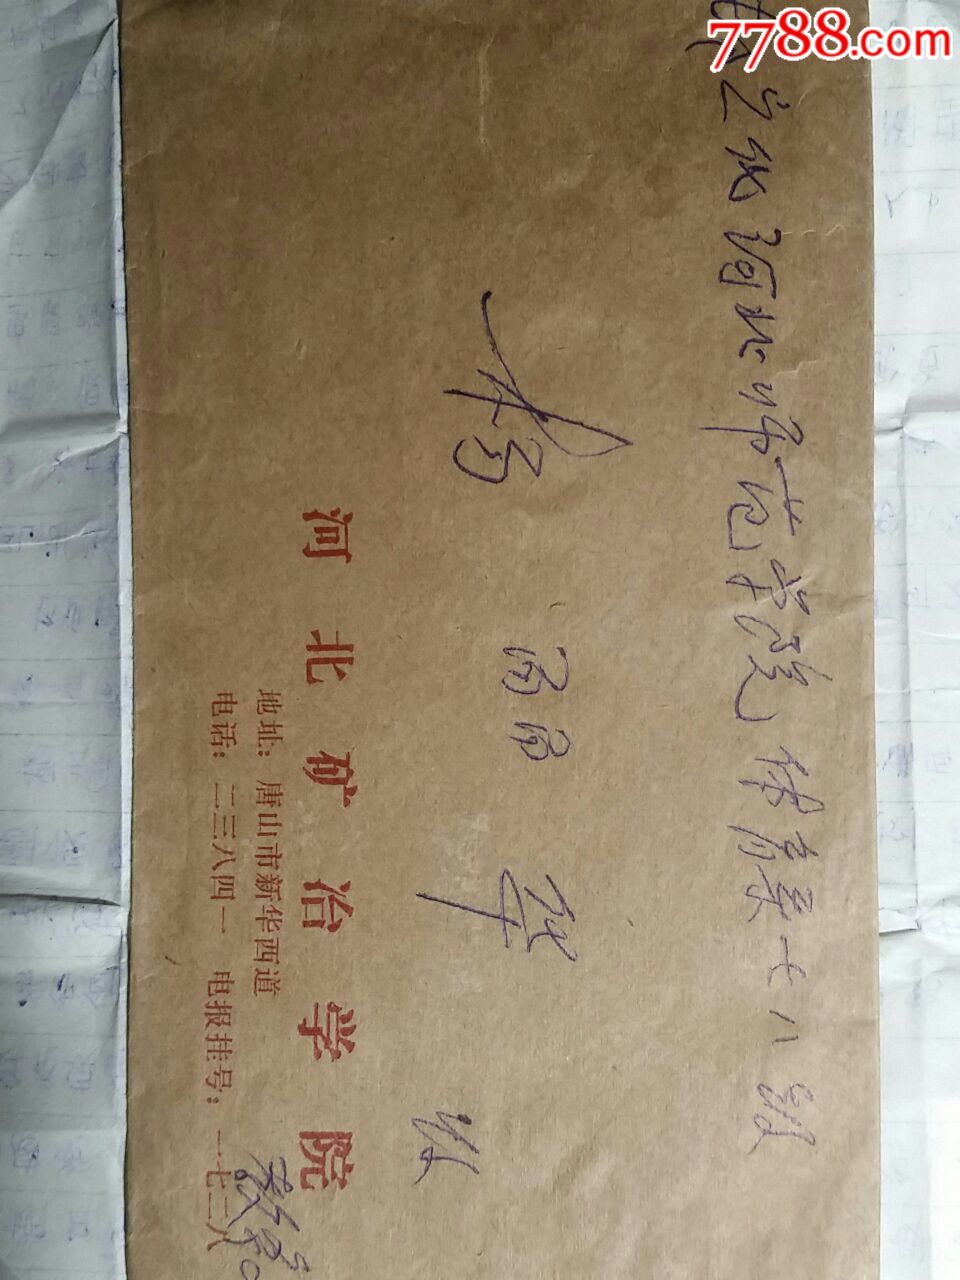 7788.com
河北师范学院体育系七八级
华
收
河北矿冶学院
地址：唐山市新华西道
电话：二三八四一 电报挂号：一七三八
数学